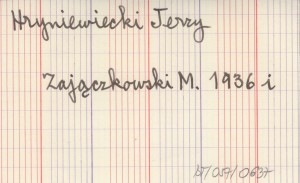 Hryniewiecki Jerzy
Zajączkowski M. 1936 i
67/057/0637